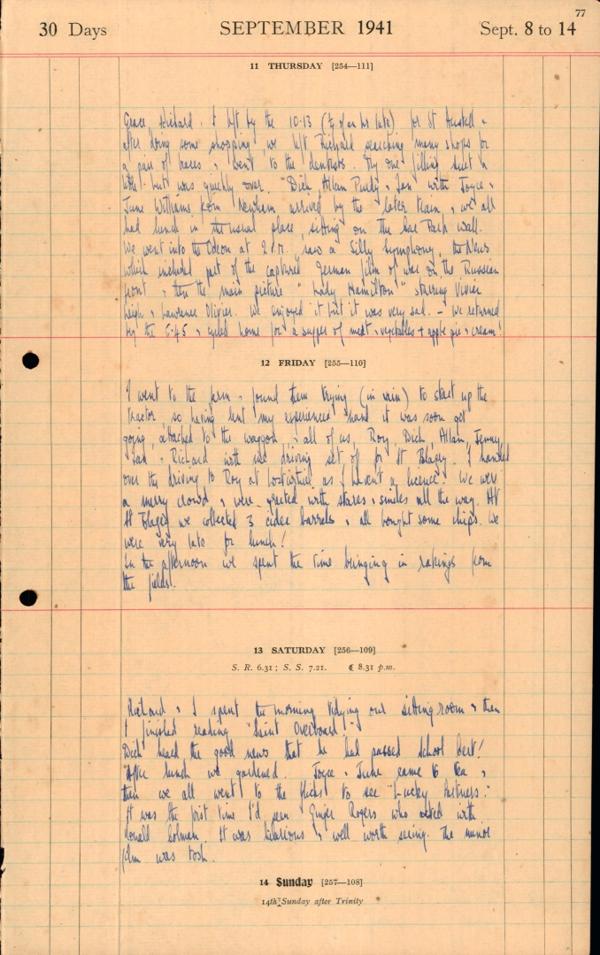 77
30 Days SEPTEMBER 1941 Sept. 8 to 14
11 THURSDAY [254—111]
Grace, Richard & I left by the 10.13 (¾ of an hr late) for St Austell &
after doing some shopping we left Richard searching many shops for
a pair of braces & went to the dentists. My one filling hurt a
little but was quickly over. Dick, Allan Purdy & Jan with Joyce &
June Williams, from Newham arrived by the later train & we all
had lunch in the usual place, sitting on the Car Park wall.
We went into the Odeon at 2 & saw a Silly Symphony, the News
which included part of the captured German film of war on the Russian
front & then the main picture "Lady Hamilton" starring Vivien
Leigh & Lawrence Olivier. We enjoyed it but it was very sad. – We returned
by the 5.45 & cycled home for a supper of meat & vegetables + apple pie & cream!
12 FRIDAY [255—110]
I went to the farm & found them trying (in vain) to start up the
tractor, so having lent my experienced hand it was soon got
going, attached to the waggon, & all of us, Rory, Dick, Allan, Jenny,
Jan & Richard with me driving set off for St Blazey. I handed
over the driving to Roy at as I haven't a licence! We were
a merry crowd & were greeted with stares & smiles all the way. At
St Blazey we collected 3 cider barrels & all bought some chips. We
were very late for lunch!
In the afternoon we spent the time bringing in rakings from
the fields.
13 SATURDAY [256—109]
S. R. 6.31; S. S. 7.21. ☾ 8.31 p.m.
Richard & I spent the morning tidying our sitting room & then
I finished reading "Saint Overboard".
Dick heard the good news that he had passed School Cert!
After lunch we gardened. Joyce & June came to tea &
then we all went to the flicks to see "Lucky Partners."
It was the first time I'd seen Ginger Rogers who acted with
Ronald Colman. It was hilarious & well worth seeing. The minor
film was tosh.
14 Sunday [257—108]
14th Sunday after Trinity